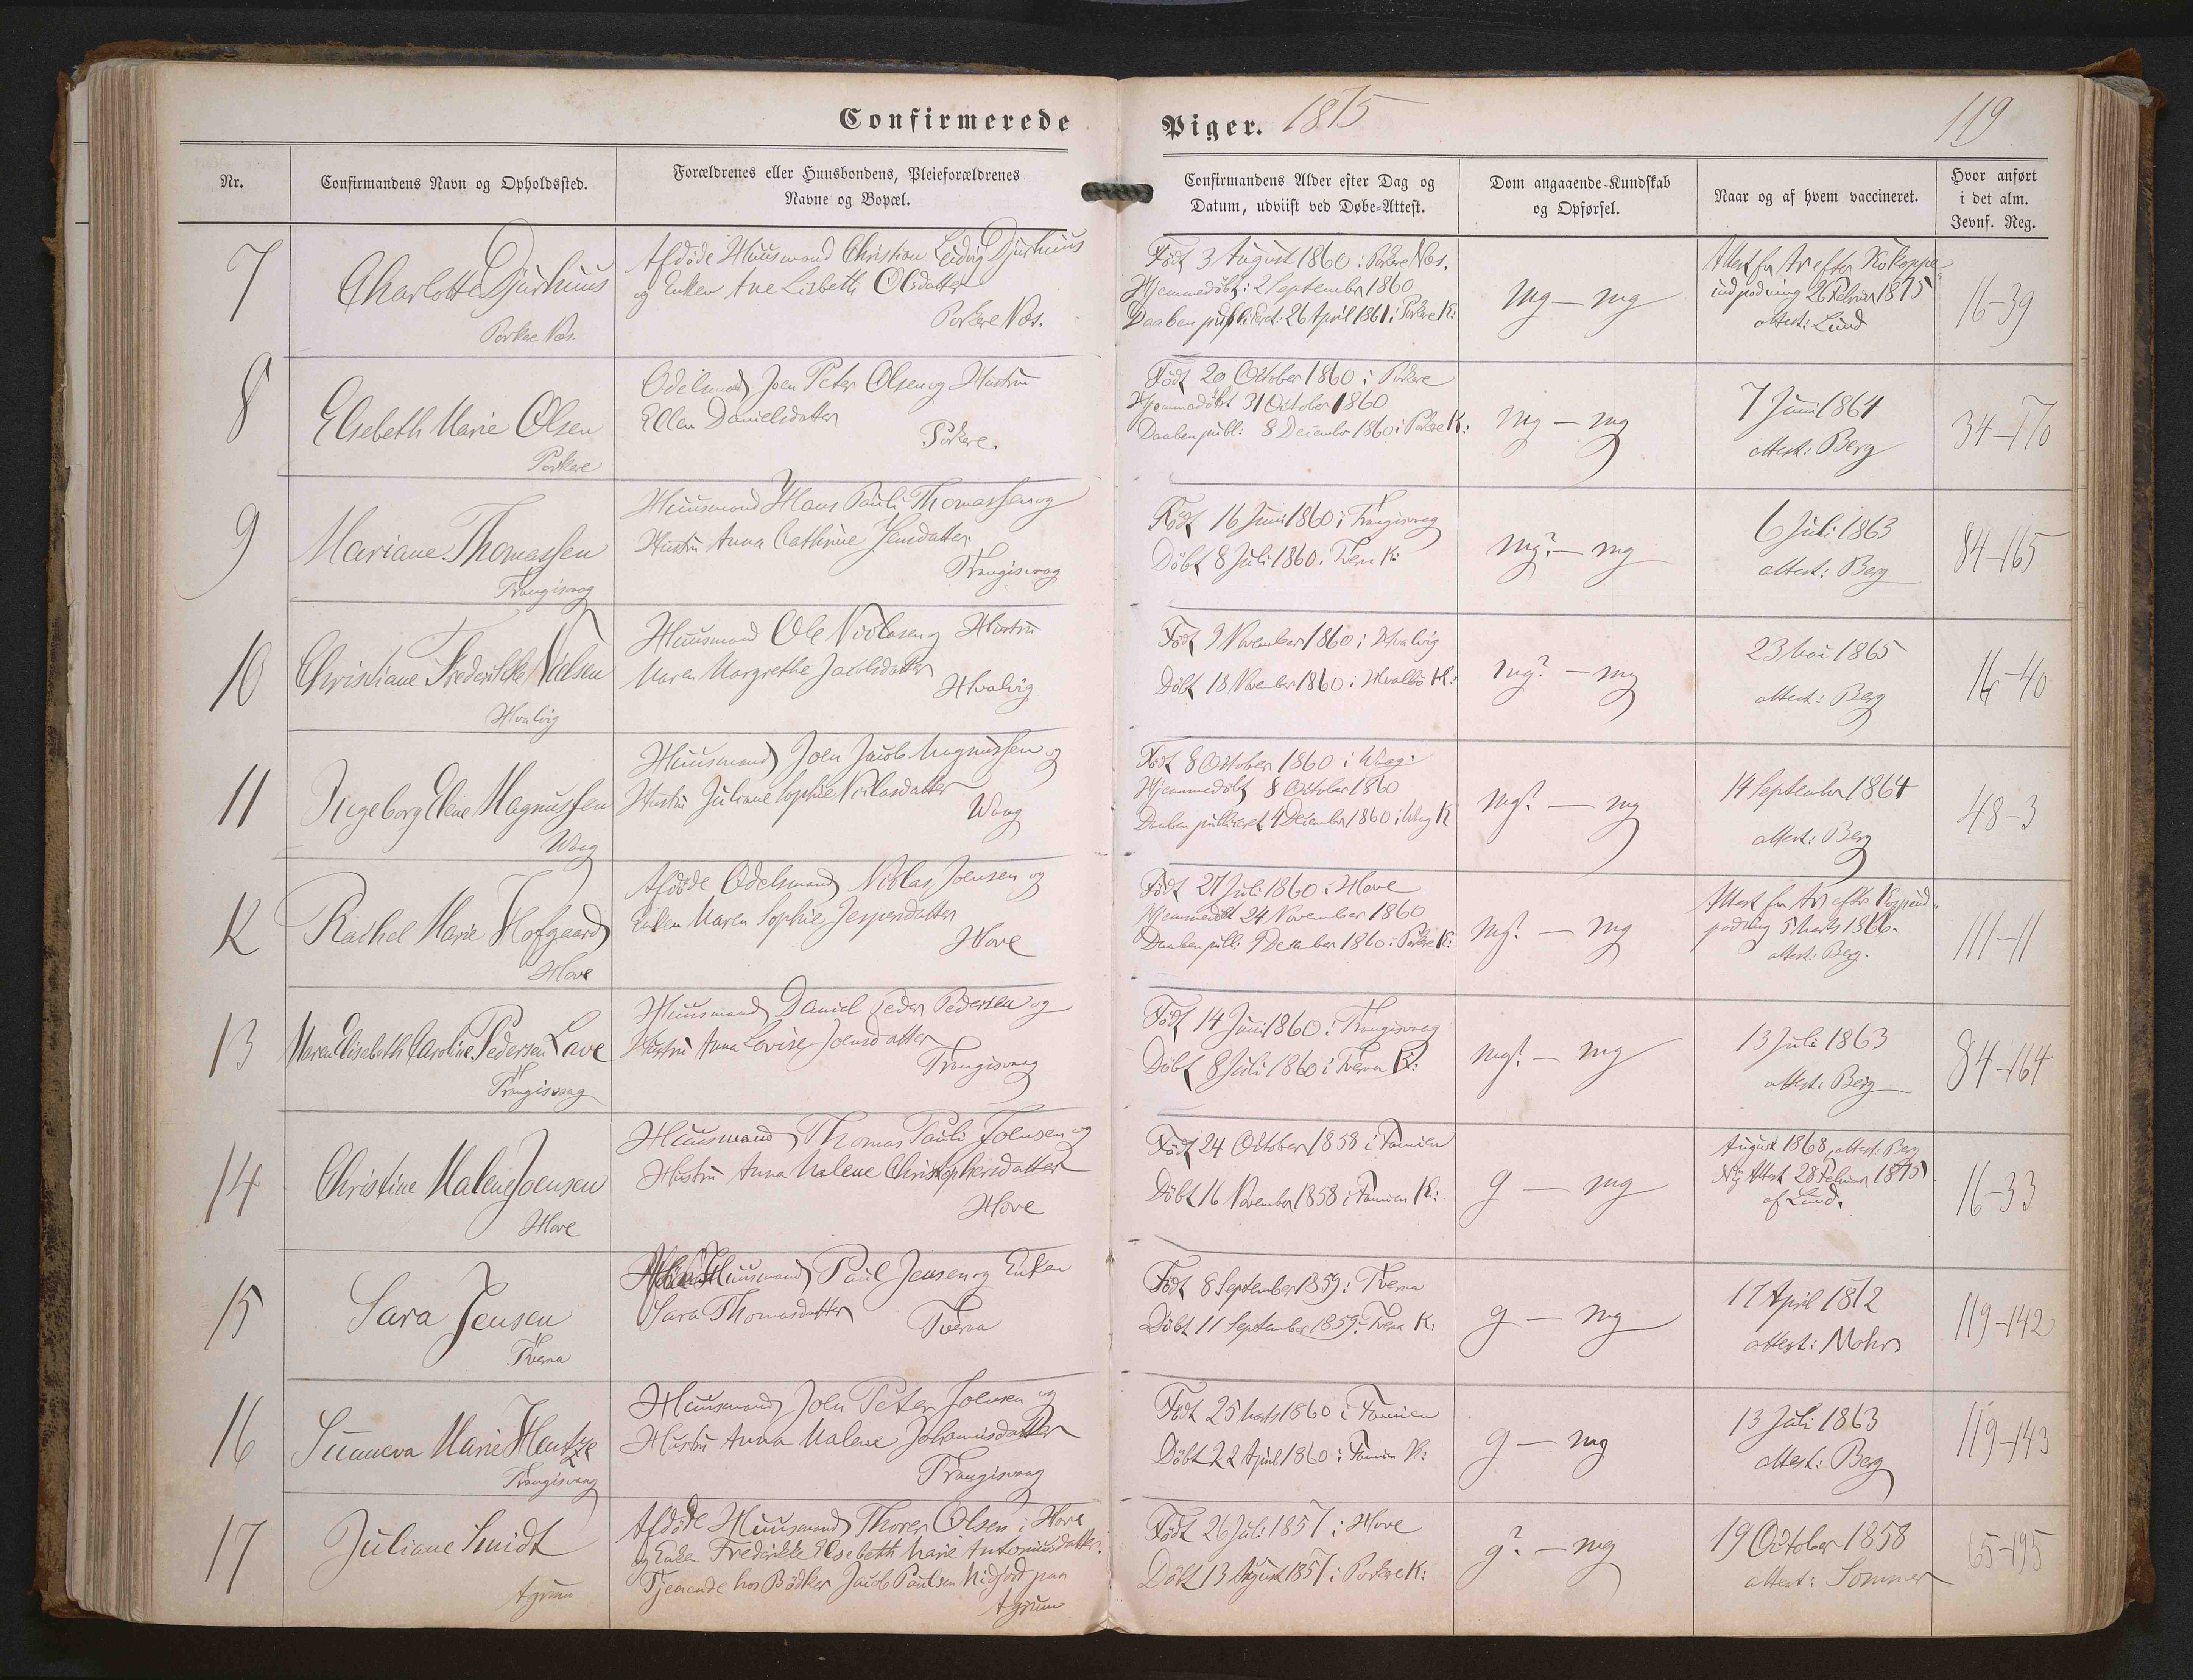 Confirmerede
Piger. 1875
119
Nr.
Confirmandens Navn og Opholdssted.
Forældrenes eller Huusbondens, Pleieforældrenes
Navne og Bopæl.
Confirmandens Alder efter Dag og
Datum, udviist ved Døbe-Attest.
Dom angaaende Kundskab
og Opførsel.
Naar og af hvem vaccineret.
Hvor anført
i det alm.
Jevnf. Reg.
7
Charlotte Djurhuus
Porkere Næs.
Afdöde Huusmand Christian Ludvig Djurhuus
og Enken Ane Lisbeth Olsdatter
Porkere Næs.
Född 3 August 1860 i Porkere Næs.
Hjemmedöbt: 2 September 1860
Daaben publiceret: 26 April 1861 i Porkere K:
mg — mg
Attest for Ar efter Kokoppe
indpodning 26 Februar 1875
attest: Lund
16-39
8
Elsebeth Marie Olsen
Porkere
Odelsmand Joen Peter Olsen og Hustru
Ellen Danielsdatter
Porkere.
Född 20 October 1860 i Porkere
Hjemmedöbt 31 October 1860
Daaben publ: 8 December 1860 i Porkere K:
mg — mg
7 Juni 1864
attest: Berg
34-170
9
Mariane Thomassen
Trangisvaag
Huusmand Hans Pauli Thomassen og
Hustru Anna Cathrine Jensdatter
Trangisvaag
Född 16 Juni 1860 i Trangisvaag
Döbt 8 Juli 1860 i Tveraa K:
mg? — mg
6 Juli 1863
attest: Berg
84-165
10
Christiane Frederikke Nielsen
Hvalvig
Huusmand Ole Niclasen og Hustru
Maren Margrethe Jacobsdatter
Hvalvig
Född 9 November 1860 i Hvalvig
Döbt 18 November 1860 i Hvalbö K:
mg? — mg
23 Mai 1865
attest: Berg
16-40
11
Ingeborg Elene Magnussen
Waag
Huusmand Joen Jacob Magnussen og
Hustru Juliane Sophie Niclasdatter
Waag
Född 8 October 1860 i Waag.
Hjemmedöbt 8 October 1860
Daaben publiceret 4 December 1860 i Waag K
mg? — mg
14 September 1864
attest: Berg
48-3
12
Rachel Marie Hofgaard
Hove
Afdöde Odelsmand Niklas Joensen og
Enken Maren Sophie Jespersdatter
Hove
Född 27 Juli 1860 i Hove
Hjemmedöbt 24 November 1860
Daaben publ: 9 December 1860 i Porkere K:
mg? — mg
Attest for Ar efter Koppeind-
podning 5 Marts 1866.
attest: Berg.
111-11
13
Maren Elisabeth Caroline Pedersen Lave
Trangisvaag
Huusmand Daniel Peder Pedersen og
Hustru Anna Lovise Joensdatter
Trangisvaag
Född 14 Juni 1860 i Trangisvaag
Döbt 8 Juli 1860 i Tveraa K:
mg? — mg
13 Juli 1863
attest: Berg
84-164
14
Christine Malene Joensen
Hove
Huusmand Thomas Pauli Joensen og
Hustru Anna Malene Christophersdatter
Hove
Född 24 October 1858 i Famien
Döbt 16 November 1858 i Famien K:
g — mg
August 1868, attest: Berg
Ny Attest 28 Februar 1875
af Lund.
16-33
15
Sara Jensen
Tveraa
Huusmand Paul Jensen og Enken
Sara Thomasdatter
Tveraa
Född 8 September 1859 i Tveraa
Döbt 11 September 1859 i Tveraa K:
g — mg
17 April 1872
attest: Mohr
119-142
16
Sunneva Marie Hentze
Trangisvaag
Huusmand Joen Peter Joensen og
Hustru Anna Malene Johannisdatter
Trangisvaag
Född 25 Marts 1860 i Famien
Döbt 22 April 1860 i Famien K:
g — mg
13 Juli 1863
attest: Berg
119-143
17
Juliane Smidt
Agrum
Afdöde Huusmand Thorer Olsen i Hove
og Enken Fredrikke Elsebeth Marie Antoniusdatter.
Tjenende hos Bödker Jacob Paulsen Midfjord paa
Agrum
Född 26 Juli 1857 i Hove
Döbt 13 August 1857 i Porkere K:
g? — mg
19 October 1858
attest: Sommer
65-195